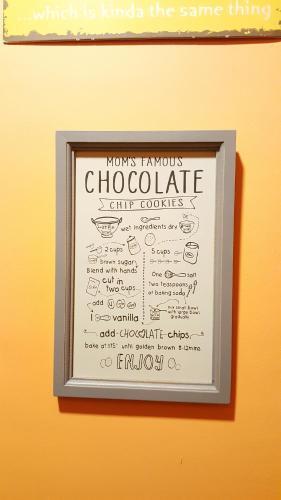 ...which is kinda the same thing
MOM'S FAMOUS
CHOCOLATE
CHIP COOKIES
wet ingredients dry
2 cups 5 cups
brown sugar
Blend with hands One salt
cut in two teaspoons
two cups of baking soda
add mix small bowl
with large bowl
gradually
1 vanilla
add CHOCOLATE chips
bake at 375° until golden brown 8-12mins
ENJOY